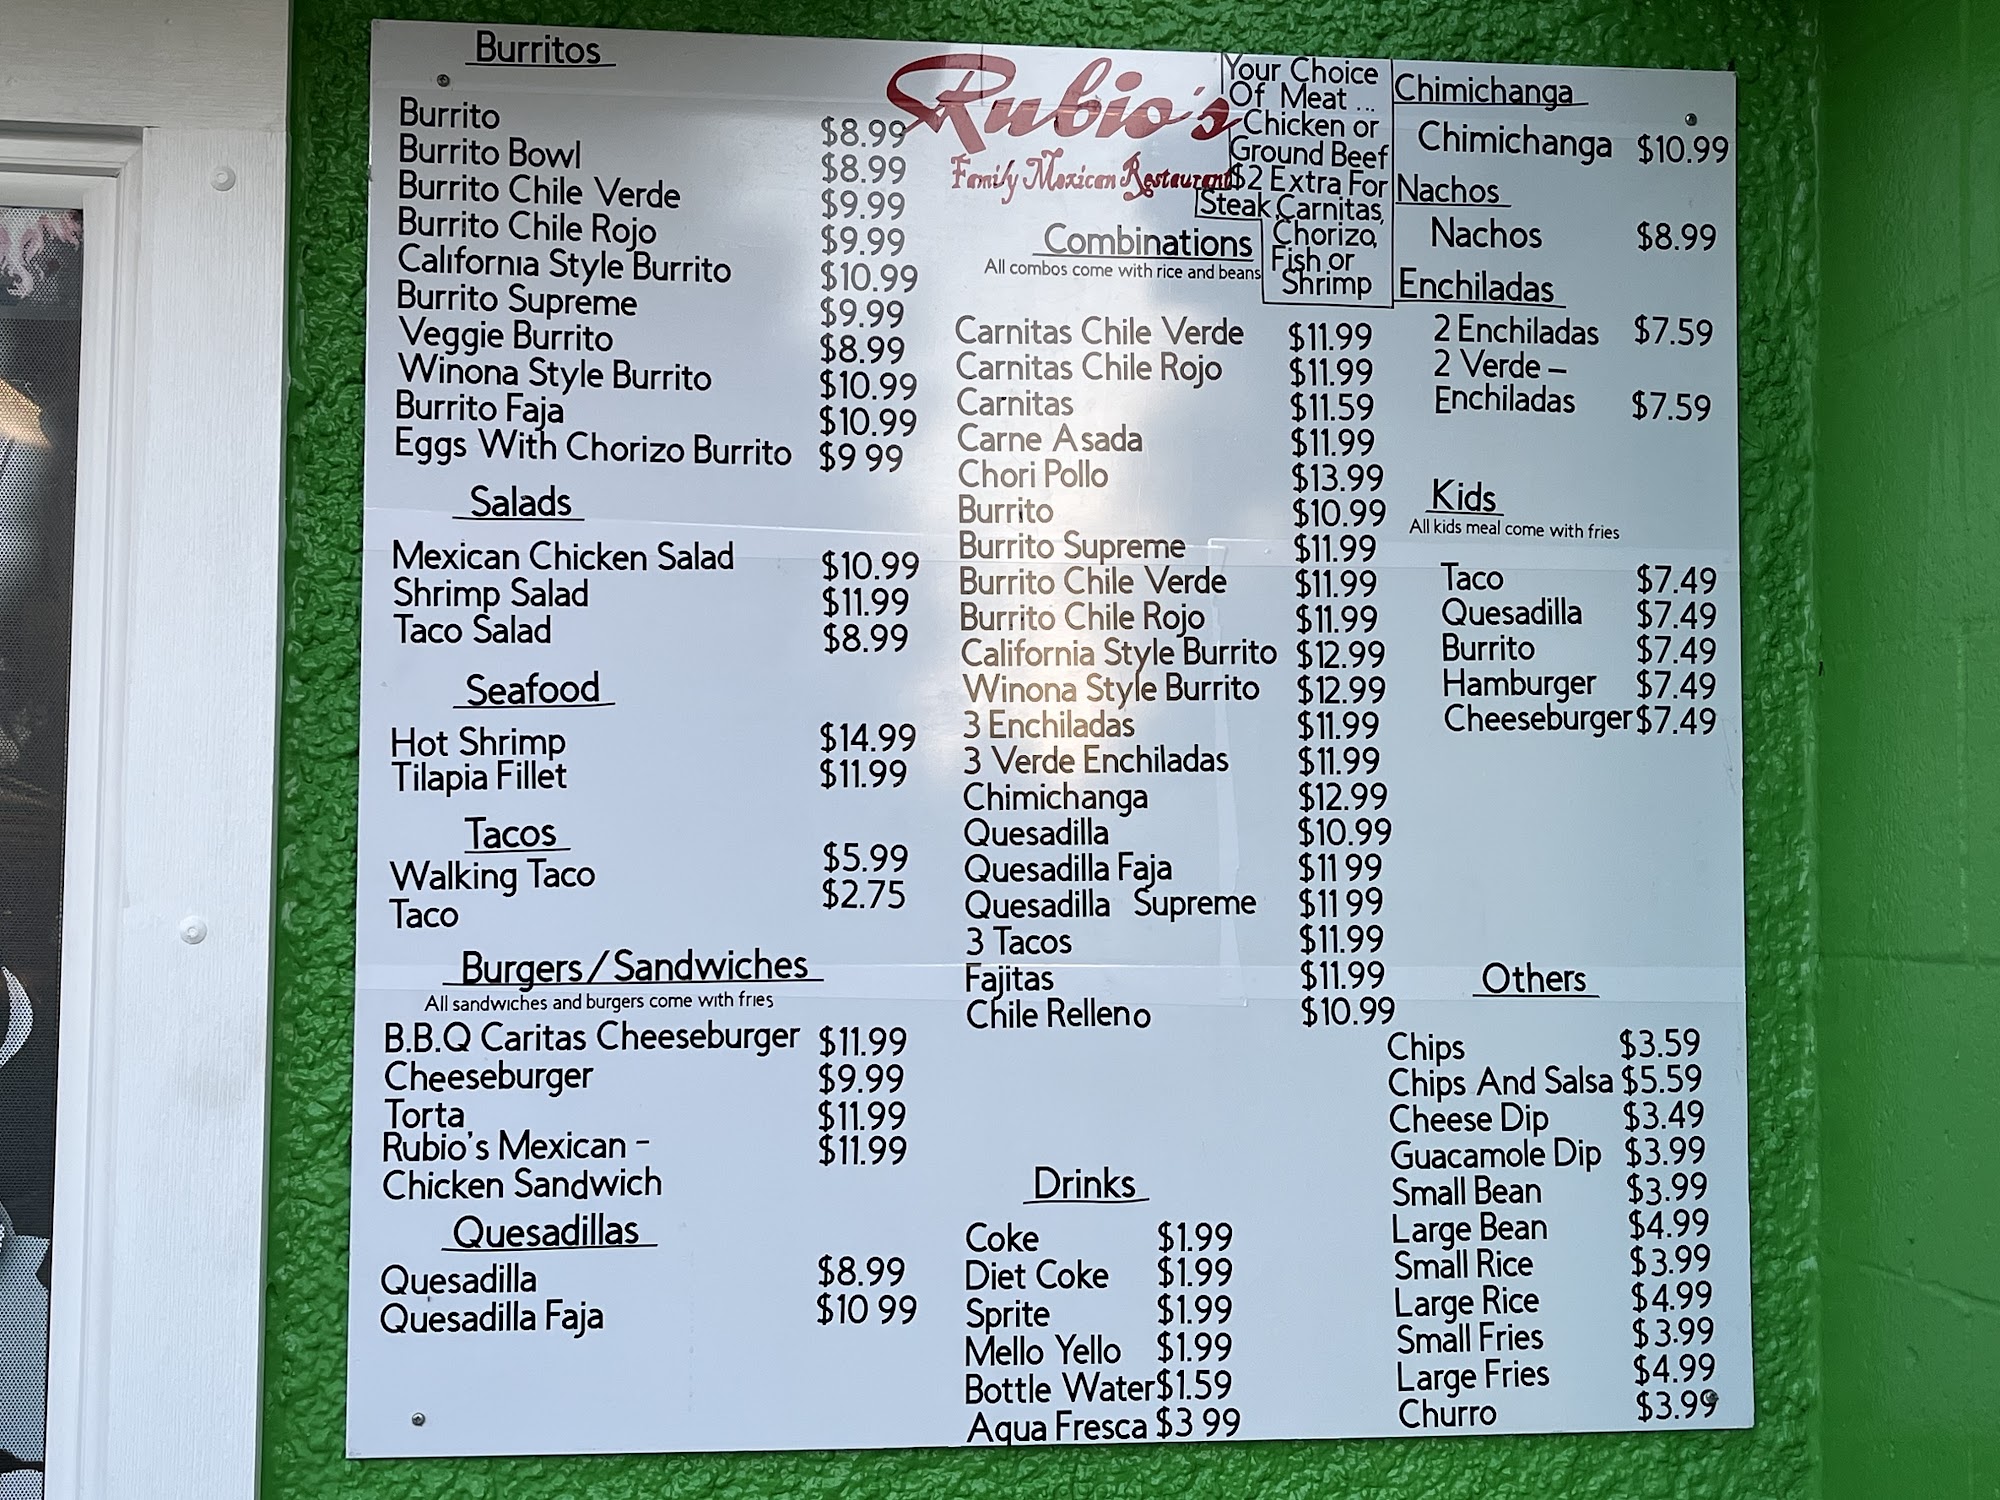 Burritos
Burrito $8.99
Burrito Bowl $8.99
Burrito Chile Verde $9.99
Burrito Chile Rojo $9.99
California Style Burrito $10.99
Burrito Supreme $9.99
Veggie Burrito $8.99
Winona Style Burrito $10.99
Burrito Faja $10.99
Eggs With Chorizo Burrito $9 99
Salads
Mexican Chicken Salad $10.99
Shrimp Salad $11.99
Taco Salad $8.99
Seafood
Hot Shrimp $14.99
Tilapia Fillet $11.99
Tacos
Walking Taco $5.99
Taco $2.75
Burgers/Sandwiches
All sandwiches and burgers come with fries
B.B.Q Caritas Cheeseburger $11.99
Cheeseburger $9.99
Torta $11.99
Rubio's Mexican - $11.99
Chicken Sandwich
Quesadillas
Quesadilla $8.99
Quesadilla Faja $10 99
Rubio's
Family Mexican Restaurant
Your Choice
Of Meat ...
Chicken or
Ground Beef
$2 Extra For
Steak, Carnitas,
Chorizo,
Fish or
Shrimp
Combinations
All combos come with rice and beans
Carnitas Chile Verde $11.99
Carnitas Chile Rojo $11.99
Carnitas $11.59
Carne Asada $11.99
Chori Pollo $13.99
Burrito $10.99
Burrito Supreme $11.99
Burrito Chile Verde $11.99
Burrito Chile Rojo $11.99
California Style Burrito $12.99
Winona Style Burrito $12.99
3 Enchiladas $11.99
3 Verde Enchiladas $11.99
Chimichanga $12.99
Quesadilla $10.99
Quesadilla Faja $11 99
Quesadilla Supreme $11 99
3 Tacos $11.99
Fajitas $11.99
Chile Relleno $10.99
Drinks
Coke $1.99
Diet Coke $1.99
Sprite $1.99
Mello Yello $1.99
Bottle Water $1.59
Aqua Fresca $3 99
Chimichanga
Chimichanga $10.99
Nachos
Nachos $8.99
Enchiladas
2 Enchiladas $7.59
2 Verde –
Enchiladas $7.59
Kids
All kids meal come with fries
Taco $7.49
Quesadilla $7.49
Burrito $7.49
Hamburger $7.49
Cheeseburger $7.49
Others
Chips $3.59
Chips And Salsa $5.59
Cheese Dip $3.49
Guacamole Dip $3.99
Small Bean $3.99
Large Bean $4.99
Small Rice $3.99
Large Rice $4.99
Small Fries $3.99
Large Fries $4.99
Churro $3.99